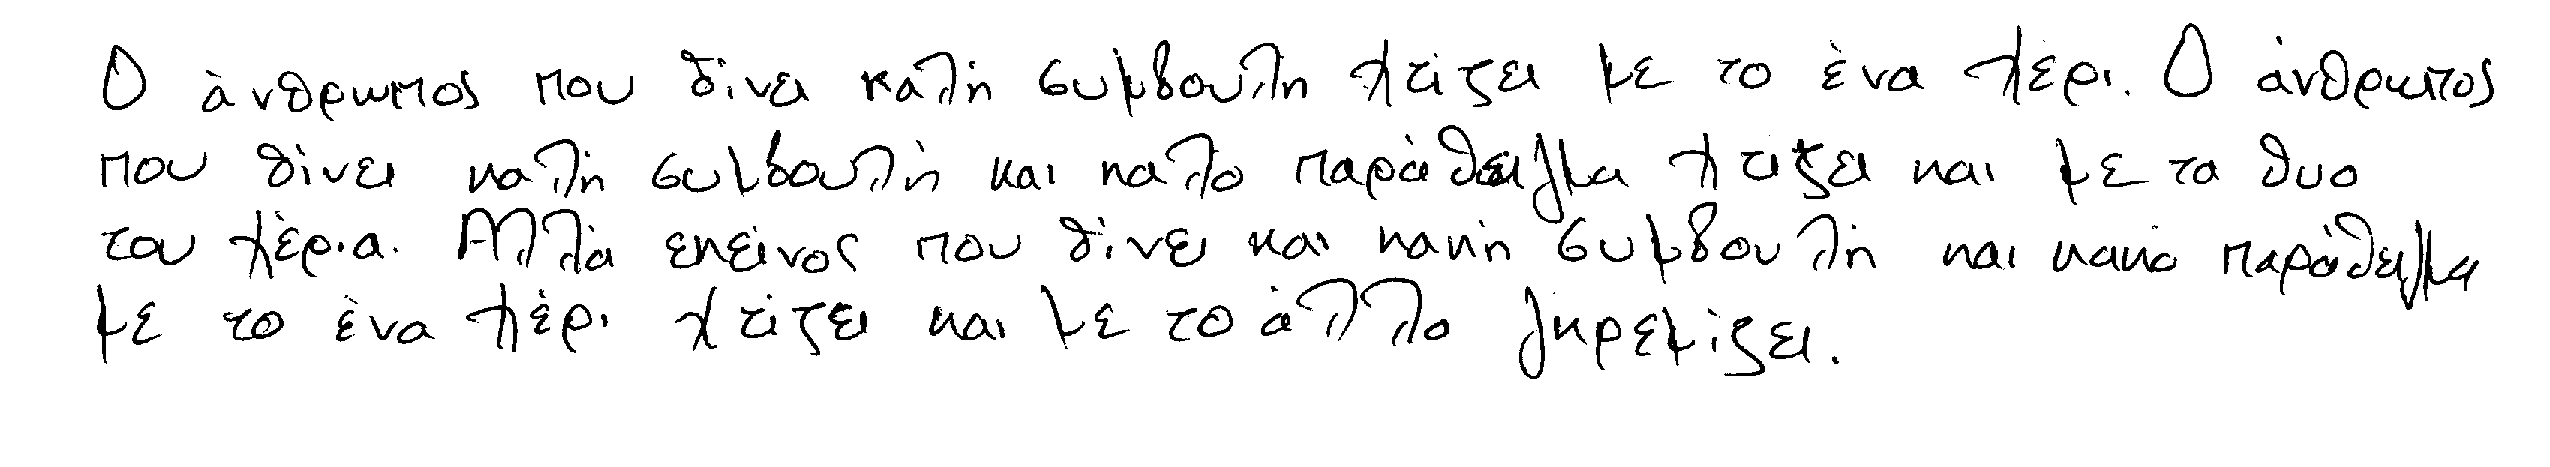 Ο άνθρωπος που δίνει καλή συμβουλή χτίζει με το ένα χέρι. Ο άνθρωπος
που δίνει καλή συμβουλή και καλό παράδειγμα χτίζει και με τα δυο
του χέρια. Αλλά εκείνος που δίνει και κακή συμβουλή και κακό παράδειγμα
με το ένα χέρι χτίζει και με το άλλο γκρεμίζει.